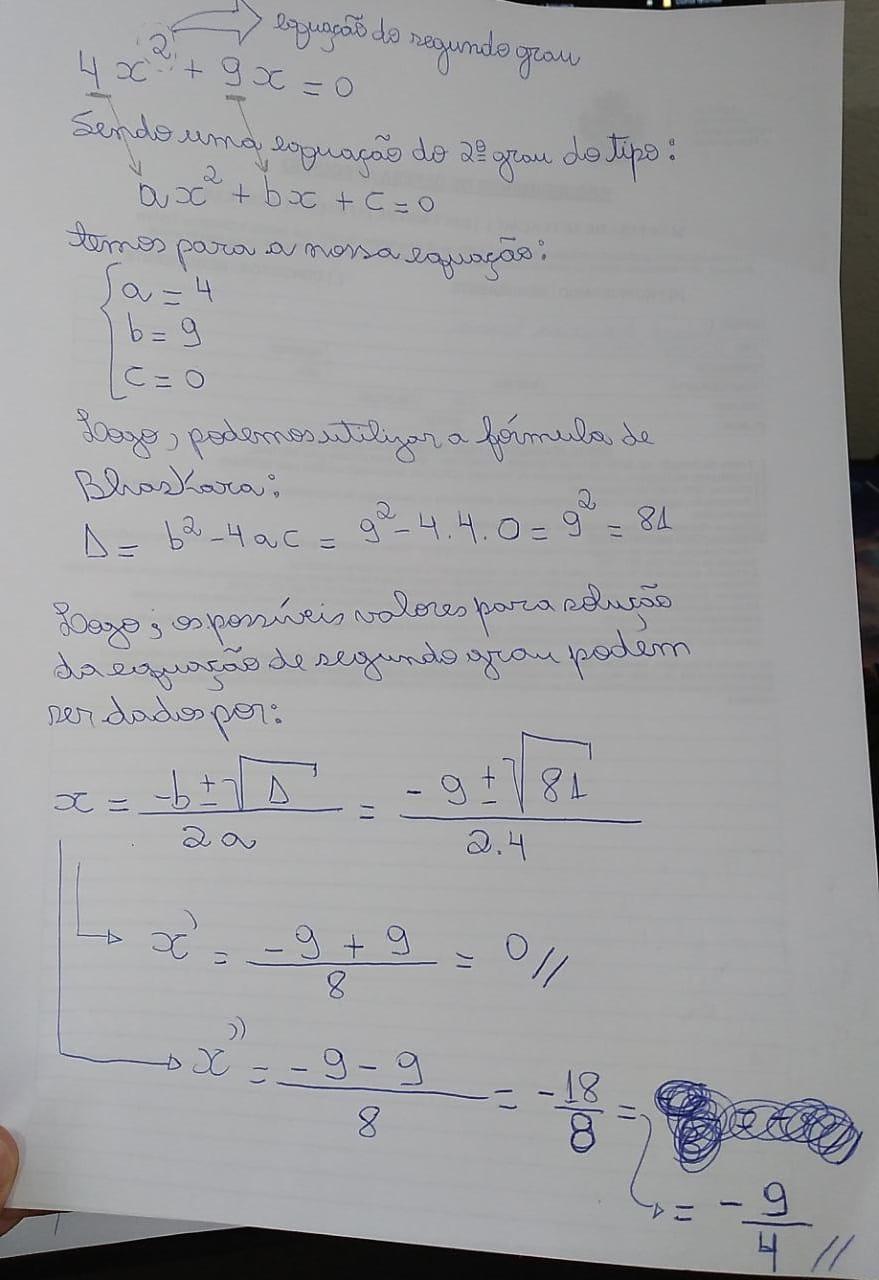 equação do segundo grau
4x² + 9x = 0
Sendo uma equação do 2º grau do tipo:
ax² + bx + c = 0
temos para a nossa equação:
a = 4
b = 9
c = 0
Logo, podemos utilizar a fórmula de
Bhaskara:
Δ = b² - 4ac = 9² - 4.4.0 = 9² = 81
Logo, os possíveis valores para solução
da equação de segundo grau podem
ser dados por:
x = (-b ± √Δ)/2a = (-9 ± √81)/2.4
x' = (-9 + 9)/8 = 0//
x'' = (-9 - 9)/8 = -18/8 =
= -9/4 //